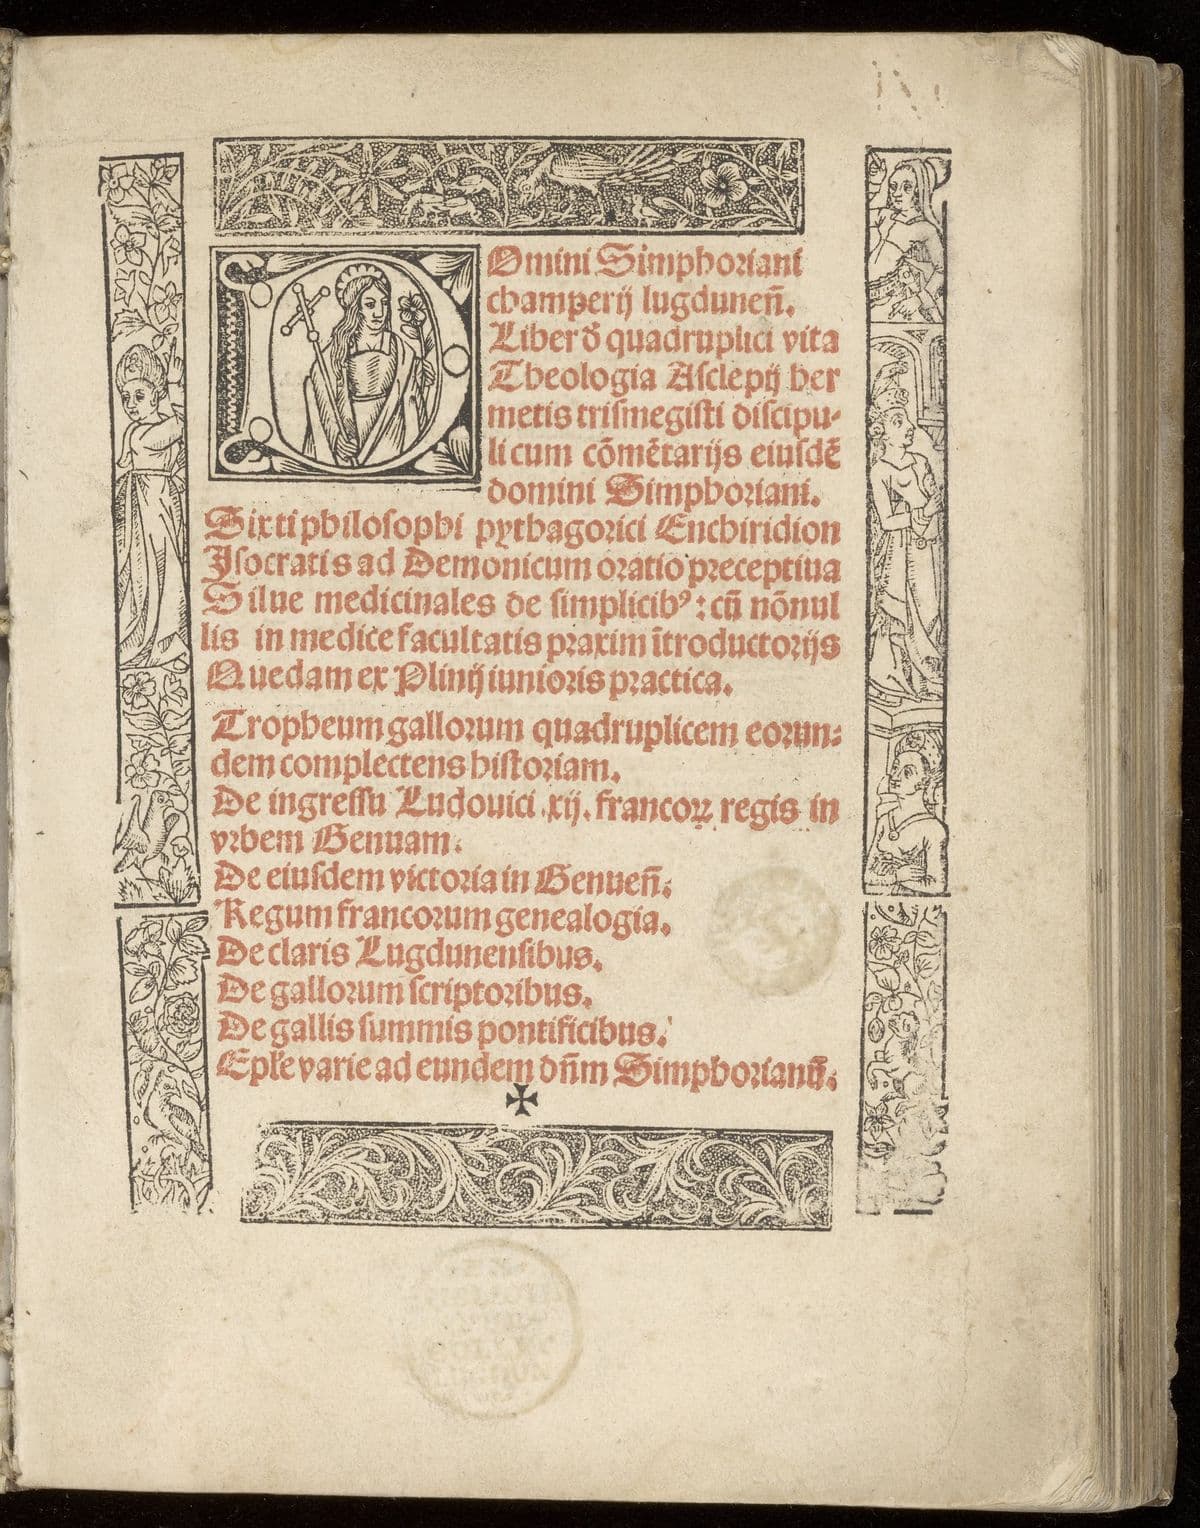 DOmini Simphoriani
champerij lugduneñ.
Liber ð quadruplici vita
Theologia Asclepij her
metis trismegisti discipu-
li cum cōmētarijs eiusdē
domini Simphoriani.
Sixti philosophi pythagorici Enchiridion
Isocratis ad Demonicum oratio preceptiua
Silue medicinales de simplicibꝰ: cū nōnul
lis in medice facultatis praxim ītroductorijs
Quedam ex Plinij iunioris practica.
Tropheum gallorum quadruplicem eorun:
dem complectens historiam.
De ingressu Ludouici .xij. francoꝝ regis in
vrbem Genuam.
De eiusdem victoria in Genueñ:
Regum francorum genealogia.
De claris Lugdunensibus.
De gallorum scriptoribus.
De gallis summis pontificibus.
Ep̄le varie ad eundem dñm Simphorianū.